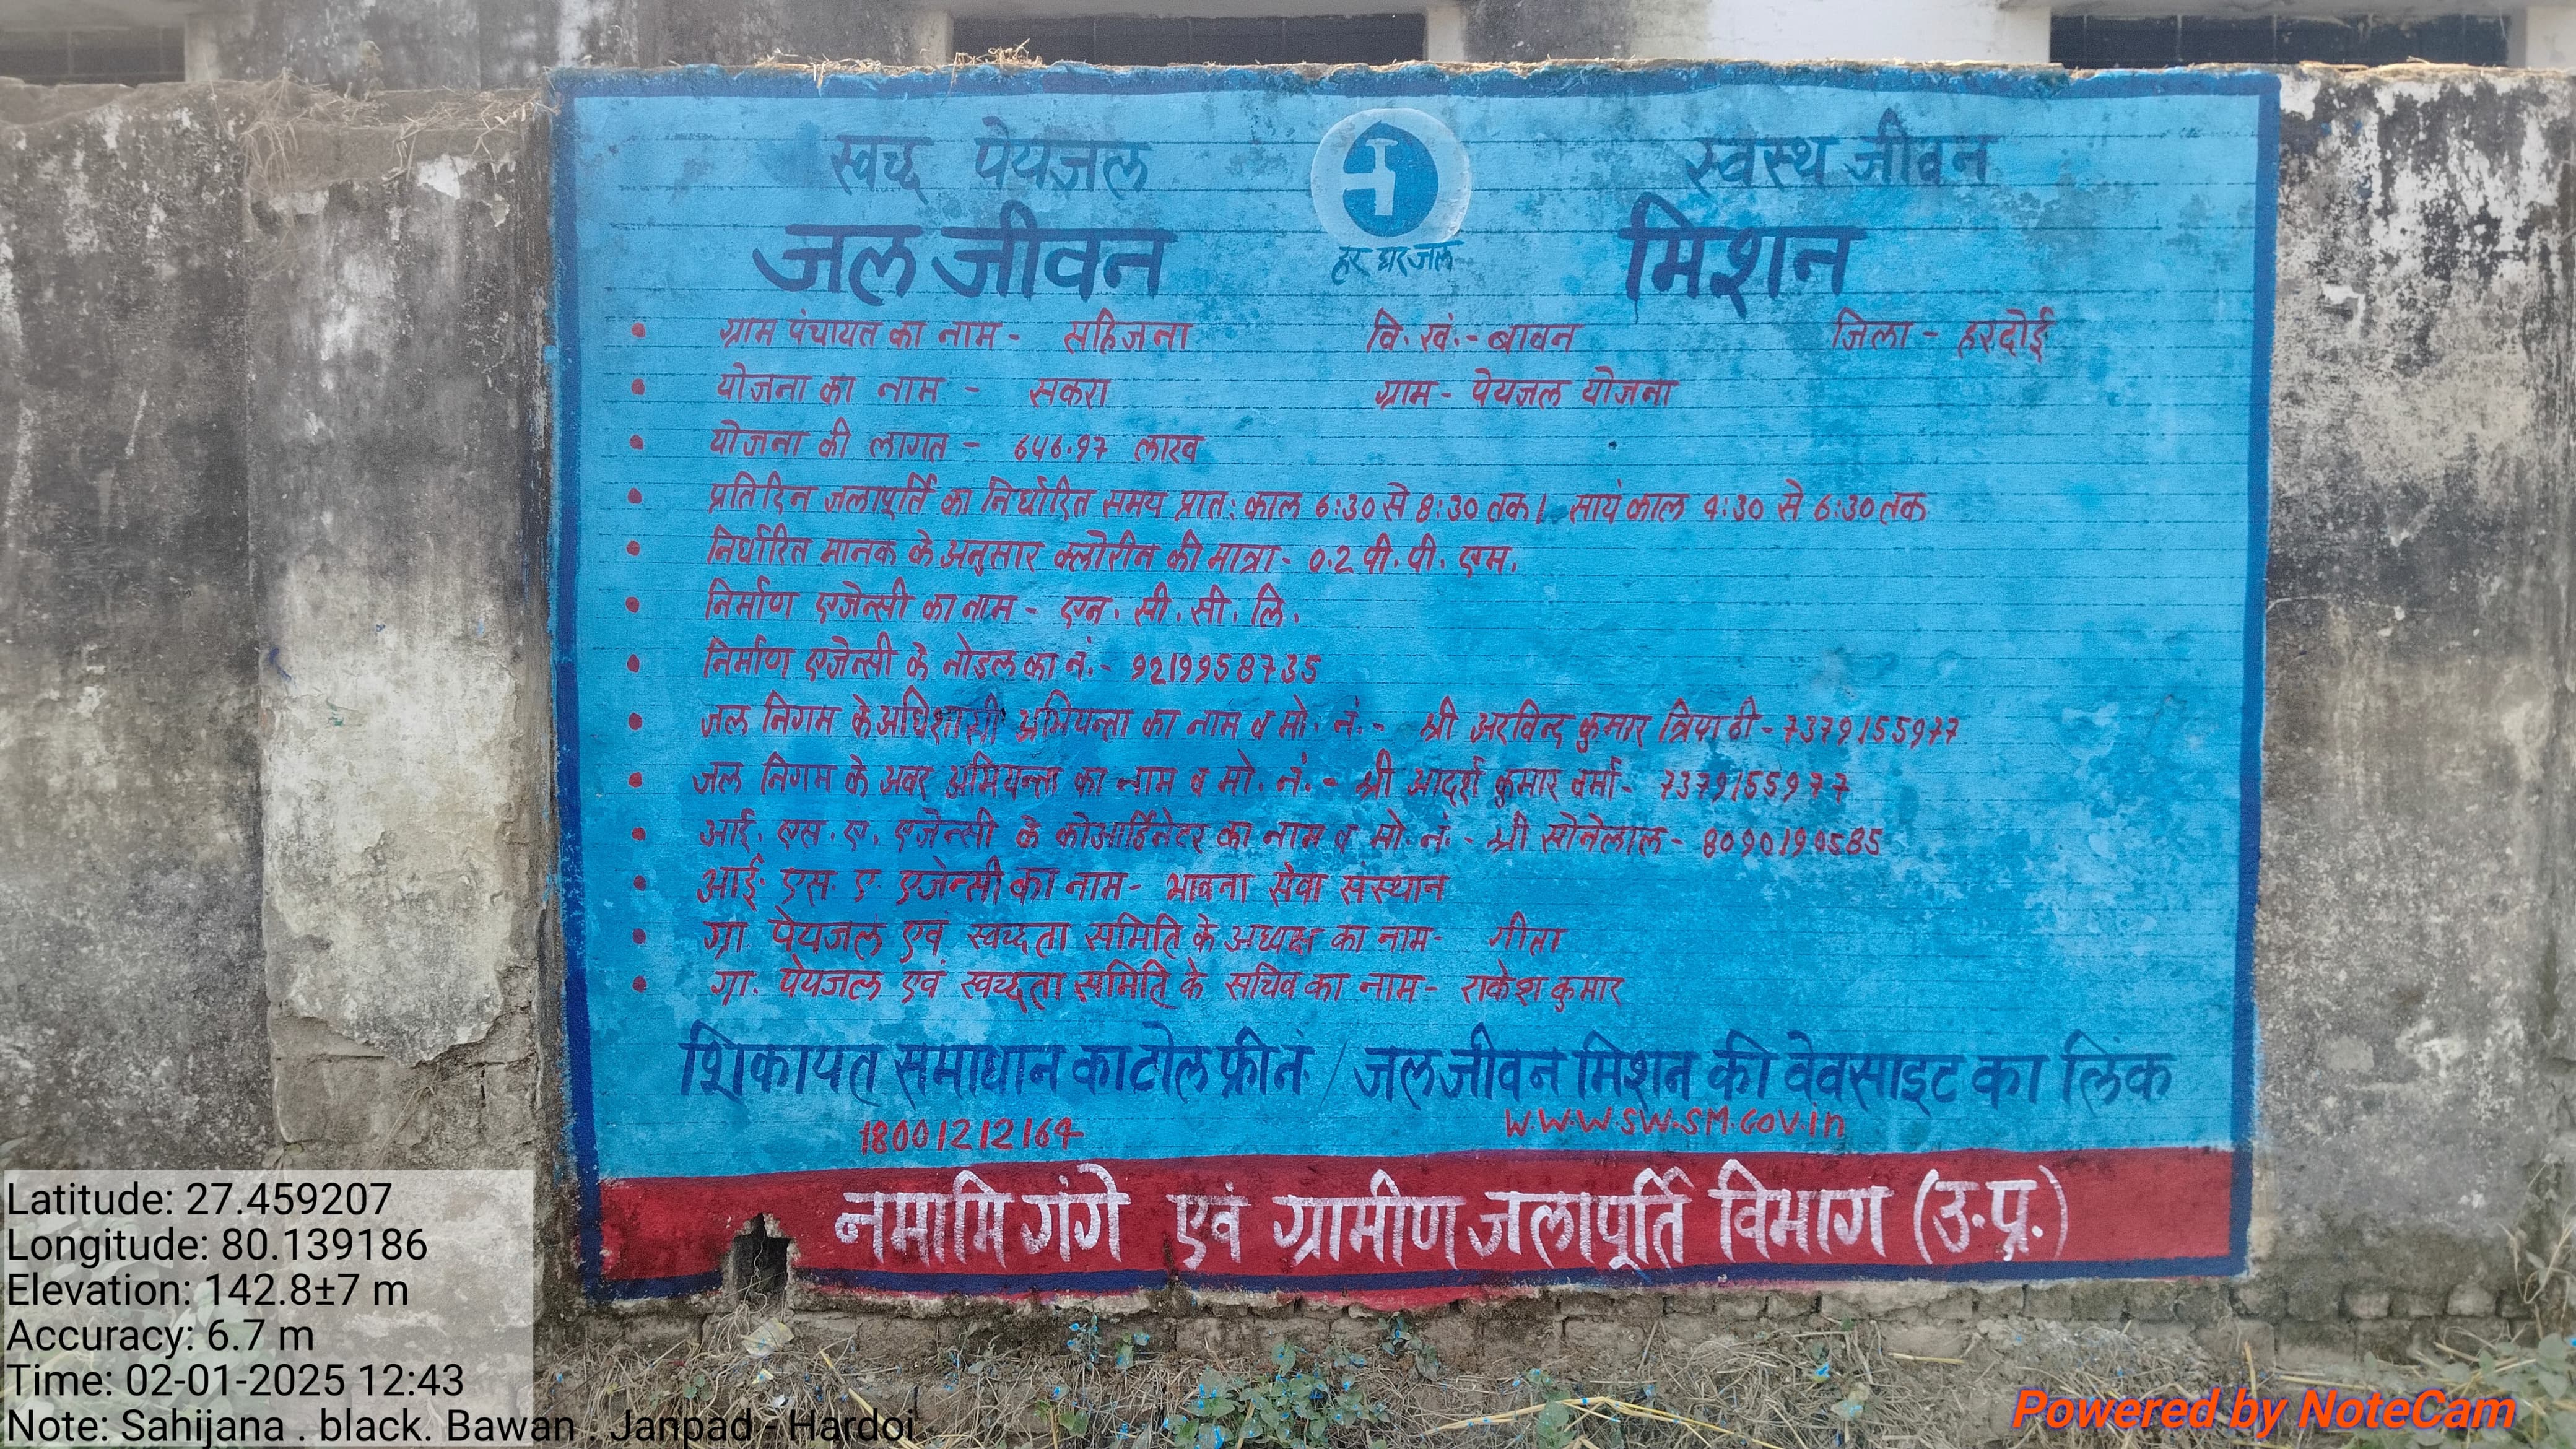 स्वच्छ पेयजल स्वस्थ जीवन
जल जीवन मिशन
हर घर जल
• ग्राम पंचायत का नाम - सहिजना वि. खं. - बावन जिला - हरदोई
• योजना का नाम - सकरा ग्राम - पेयजल योजना
• योजना की लागत - 646.97 लाख
• प्रतिदिन जलापूर्ति का निर्धारित समय प्रात: काल 6:30 से 8:30 तक। सायं काल 4:30 से 6:30 तक
• निर्धारित मानक के अनुसार क्लोरीन की मात्रा - 0.2 पी. पी. एम.
• निर्माण एजेन्सी का नाम - एन. सी. सी. लि.
• निर्माण एजेन्सी के नोडल का नं. - 9219958735
• जल निगम के अधिशासी अभियन्ता का नाम व मो. नं. - श्री अरविन्द कुमार त्रिपाठी - 7379155977
• जल निगम के अवर अभियन्ता का नाम व मो. नं. - श्री आदर्श कुमार वर्मा - 7379155977
• आई. एस. ए. एजेन्सी के कोआर्डिनेटर का नाम व मो. नं. - श्री सोनेलाल - 8090190585
• आई. एस. ए. एजेन्सी का नाम - भावना सेवा संस्थान
• ग्रा. पेयजल एवं स्वच्छता समिति के अध्यक्ष का नाम - गीता
• ग्रा. पेयजल एवं स्वच्छता समिति के सचिव का नाम - राकेश कुमार
शिकायत समाधान का टोल फ्री नं. / जल जीवन मिशन की वेवसाइट का लिंक
18001212164 W.W.W.SW.SM.GOV.in
नमामि गंगे एवं ग्रामीण जलापूर्ति विभाग (उ.प्र.)
Latitude: 27.459207
Longitude: 80.139186
Elevation: 142.8±7 m
Accuracy: 6.7 m
Time: 02-01-2025 12:43
Note: Sahijana . black. Bawan . Janpad - Hardoi
Powered by NoteCam